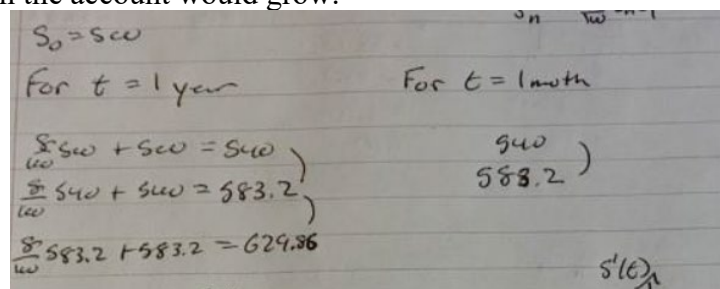 the account would grow?
S₀ = 500
For t = 1 year
For t = 1 month
8/100 500 + 500 = 540
540
8/100 540 + 540 = 583.2
583.2
8/100 583.2 + 583.2 = 629.86
S'(t)